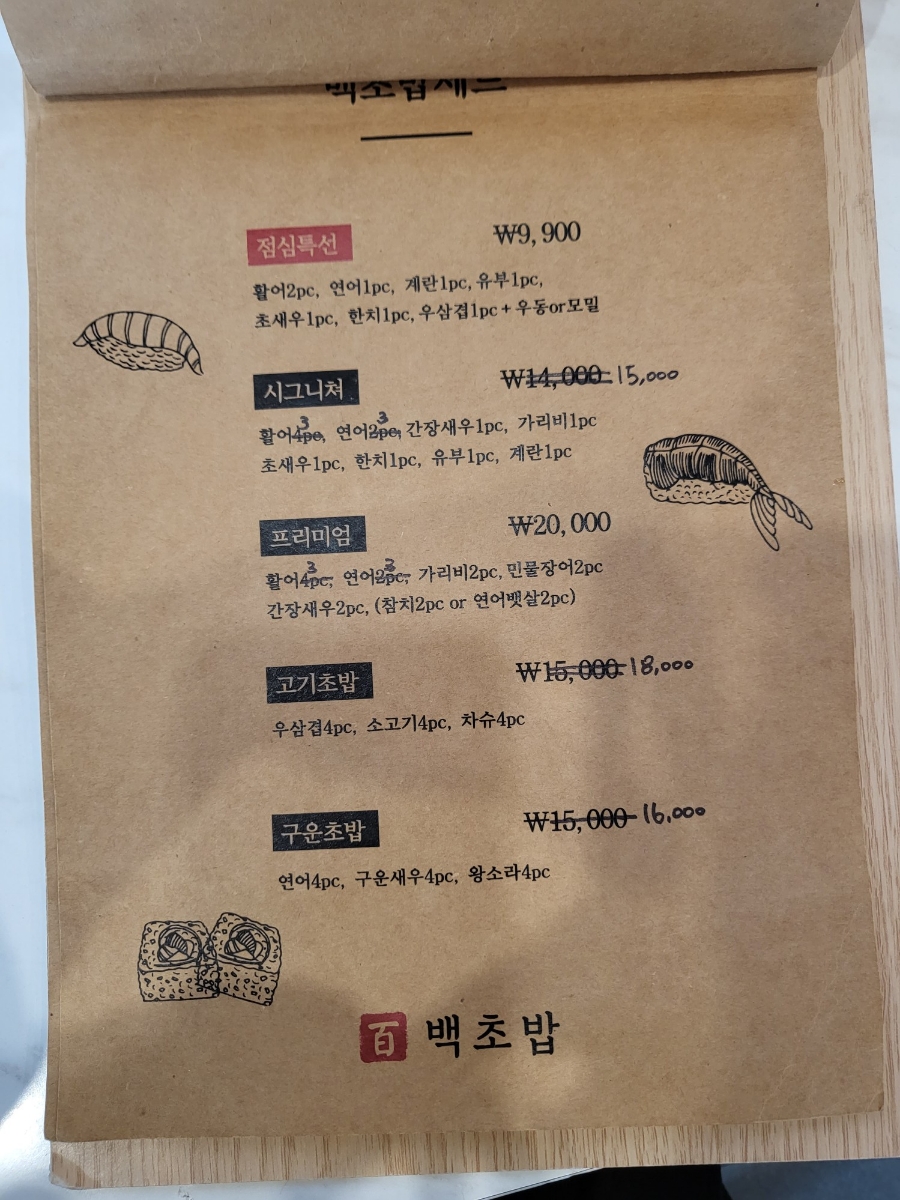 백초밥세트
점심특선 ₩9,900
활어2pc, 연어1pc, 계란1pc, 유부1pc,
초새우1pc, 한치1pc, 우삼겹1pc + 우동or모밀
시그니쳐 ₩14,000 15,000
활어4pc, 3 연어2pc, 3 간장새우1pc, 가리비1pc
초새우1pc, 한치1pc, 유부1pc, 계란1pc
프리미엄 ₩20,000
활어4pc, 3 연어2pc, 3 가리비2pc, 민물장어2pc
간장새우2pc, (참치2pc or 연어뱃살2pc)
고기초밥 ₩15,000 18,000
우삼겹4pc, 소고기4pc, 차슈4pc
구운초밥 ₩15,000 16,000
연어4pc, 구운새우4pc, 왕소라4pc
百 백초밥